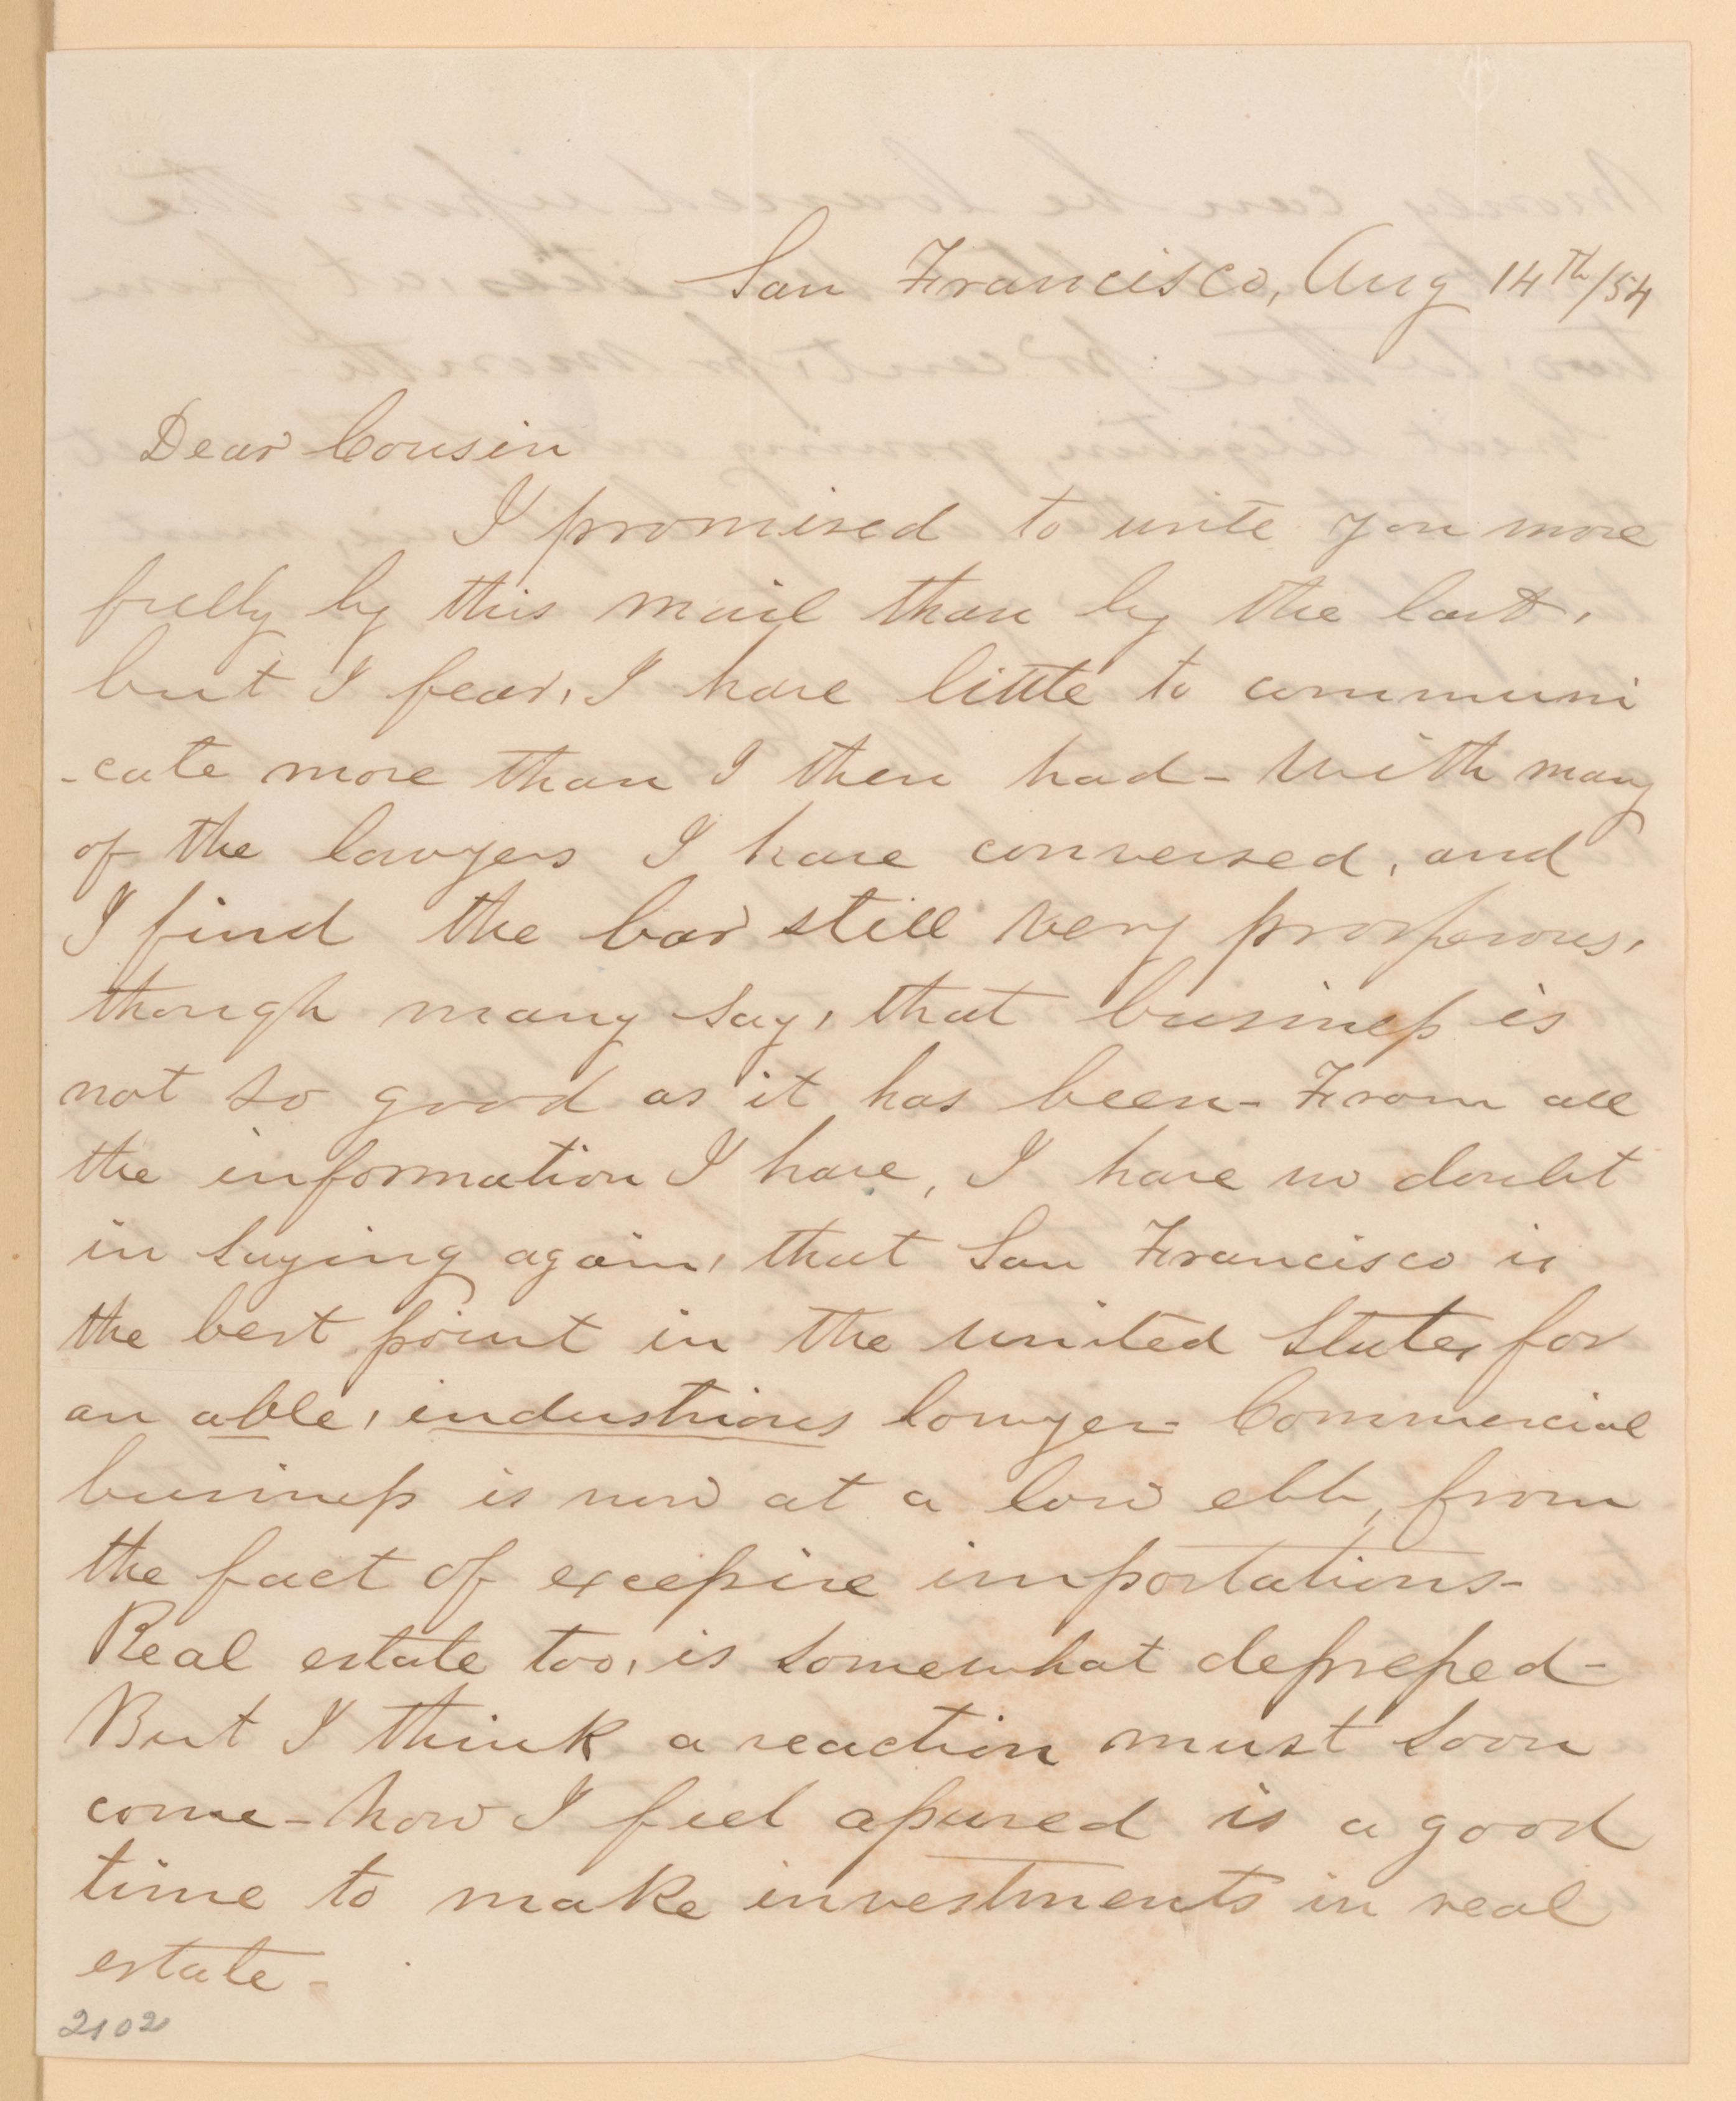 San Francisco, Aug 14th/54
Dear Cousin
I promised to write you more
fully by this mail than by the last,
but I fear, I have little to communi
-cate more than I then had - With many
of the lawyers I have conversed, and
I find the bar still very prosperous,
though many say, that business is
not so good as it has been - From all
the information I have, I have no doubt
in saying again, that San Francisco is
the best point in the united States for
an able, industrious lawyer - Commercial
business is now at a low ebb, from
the fact of excessive importations -
Real estate too, is somewhat depressed -
But I think a reaction must soon
come - now I feel assured is a good
time to make investments in real
estate -
2102